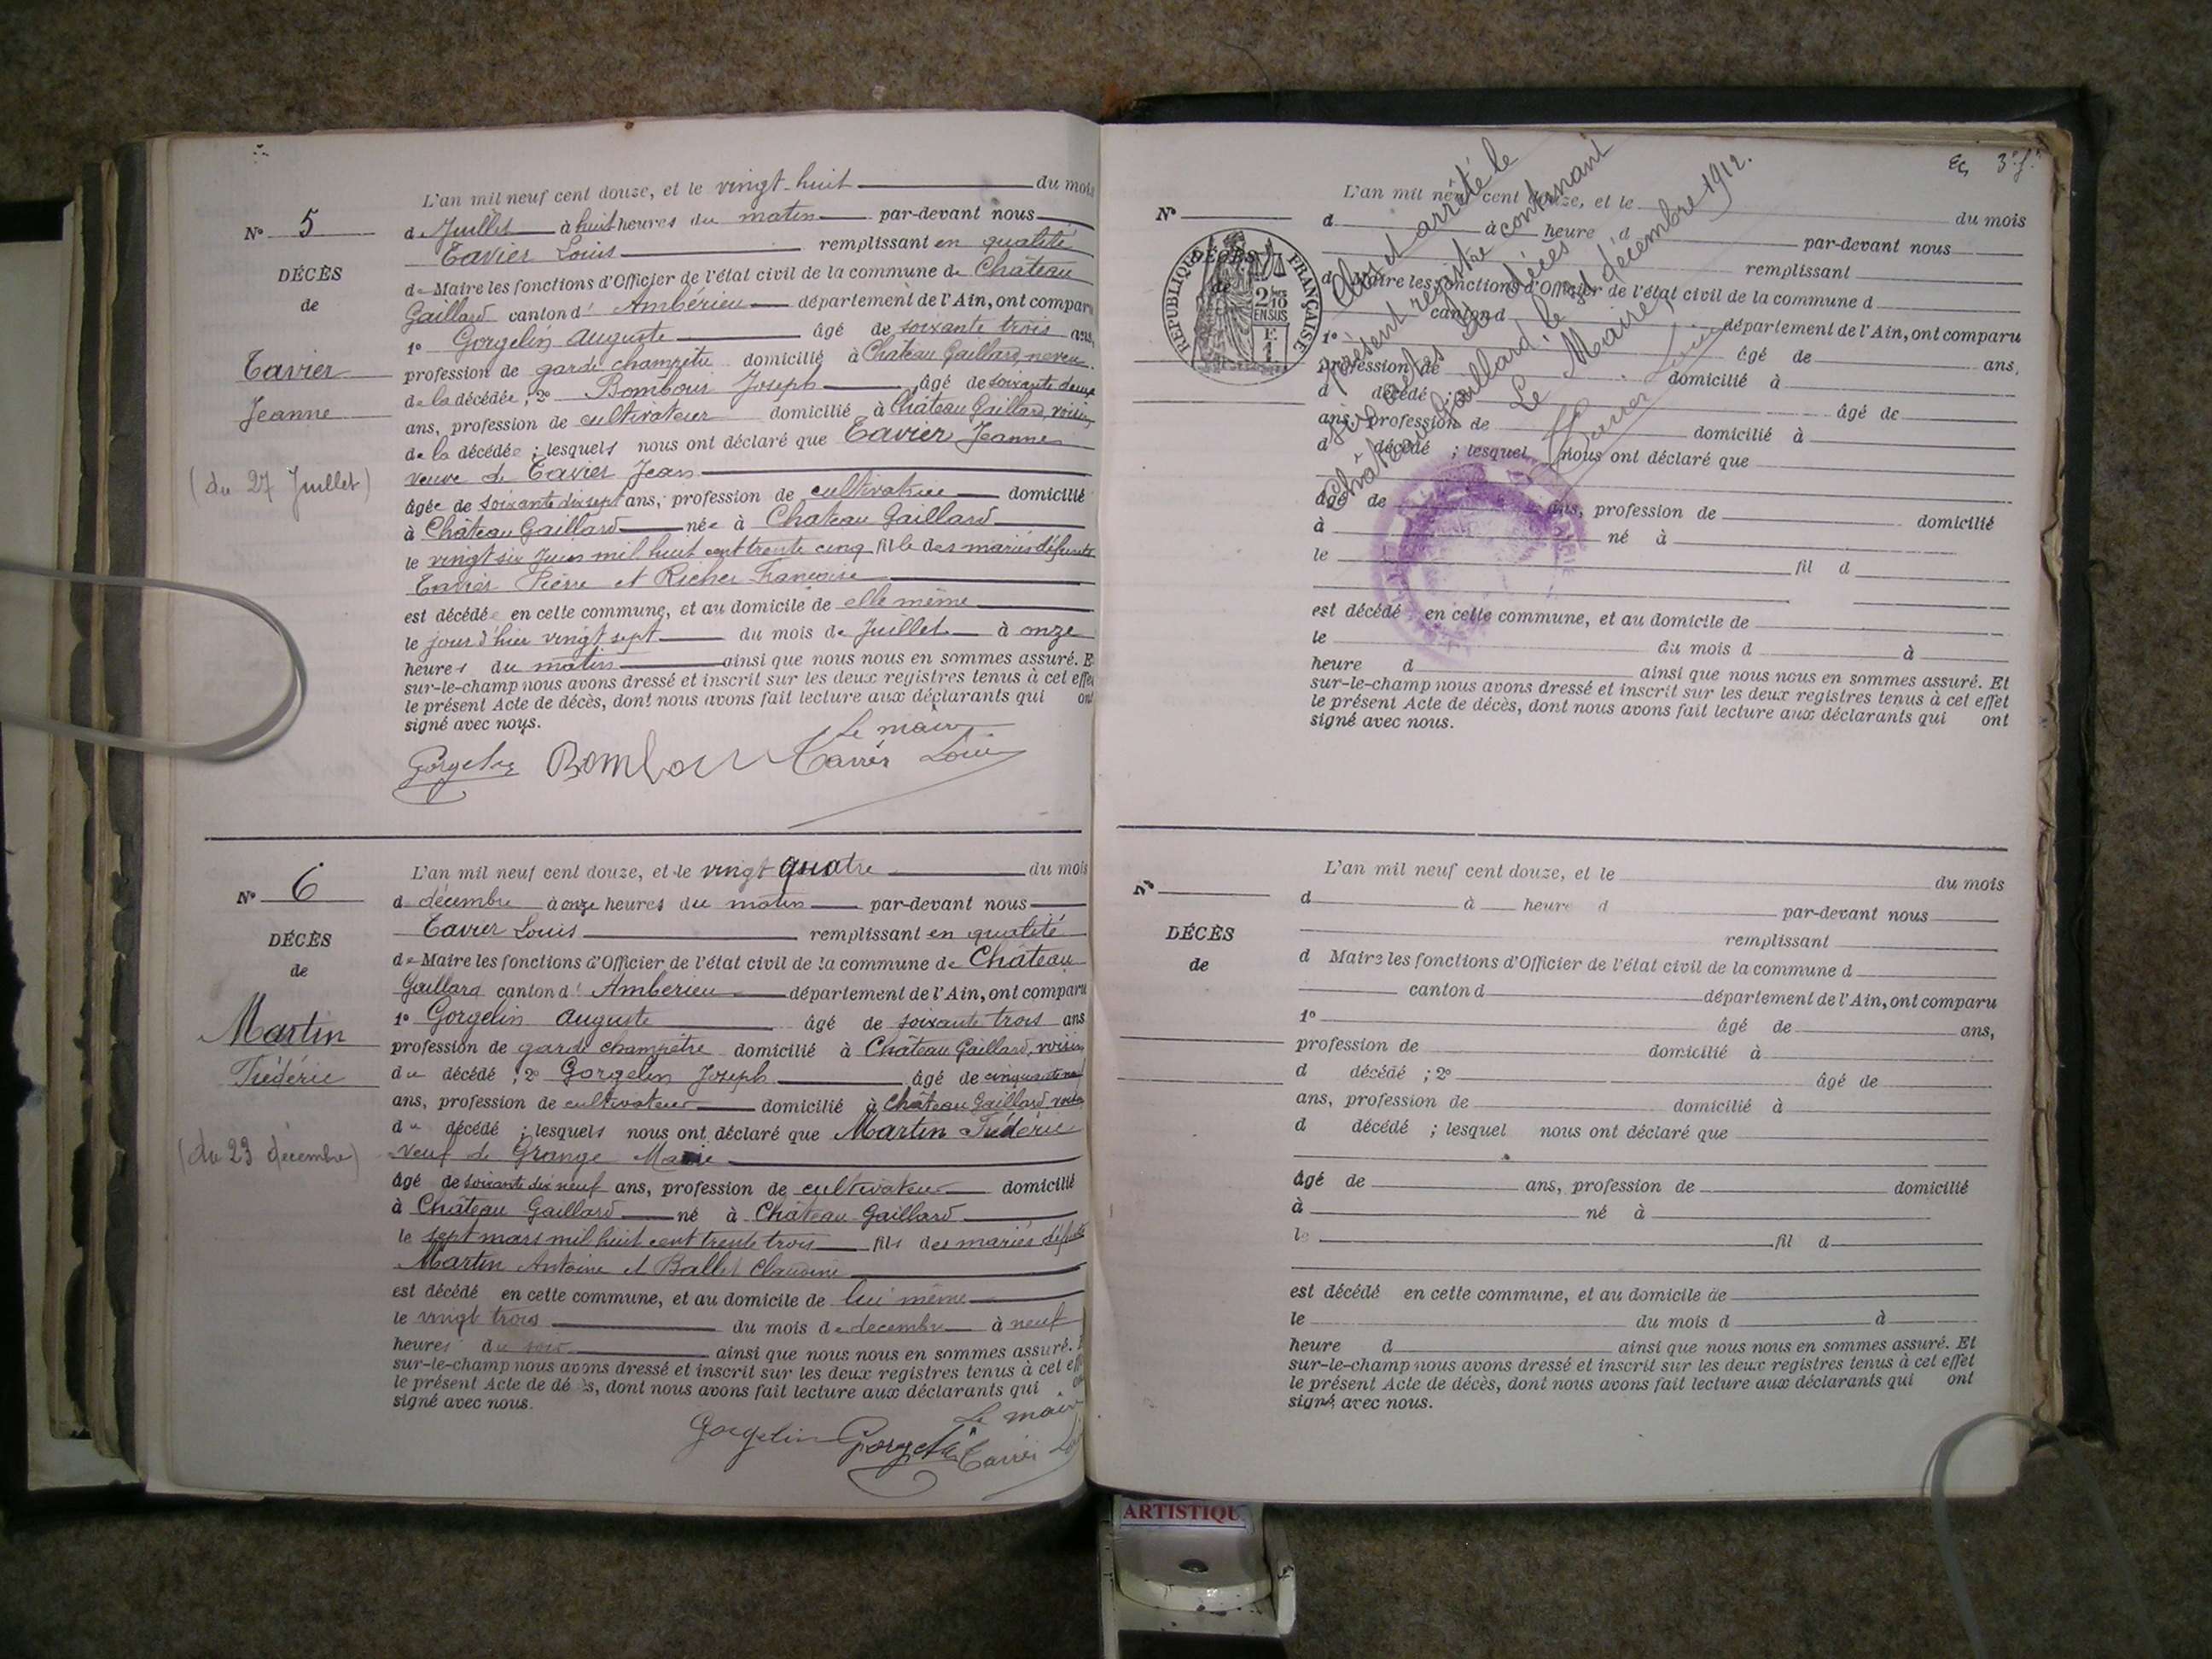 L'an mil neuf cent douze, et le vingt-huit du mois
N° 5
de Juillet à huit heures du matin par-devant nous
Tavier Louis remplissant en qualité
DÉCÈS
de Maire les fonctions d'Officier de l'état civil de la commune de Château
de
Gaillard canton d'Ambérieu département de l'Ain, ont comparu
1° Gorgelin Auguste âgé de soixante trois ans,
Tavier
profession de garde champêtre domicilié à Château Gaillard, neveu
Jeanne
de la décédée ; 2° Bombour Joseph âgé de soixante deux
ans, profession de cultivateur domicilié à Château Gaillard, voisin
de la décédée ; lesquels nous ont déclaré que Tavier Jeanne
(du 27 Juillet)
veuve de Tavier Jean
âgée de soixante dix sept ans, profession de cultivatrice domicilié
à Château Gaillard née à Chateau Gaillard
le vingt six Juin mil huit cent trente cinq fille des mariés défunts
Tavier Pierre et Richer Françoise
est décédée en cette commune, et au domicile de elle même
le jour d'hier vingt sept du mois de Juillet à onze
heures du matin ainsi que nous nous en sommes assuré. E
sur-le-champ nous avons dressé et inscrit sur les deux registres tenus à cet effet
le présent Acte de décès, dont nous avons fait lecture aux déclarants qui ont
signé avec nous.
Le maire
Gorgelin Bombour Tavier Louis
L'an mil neuf cent douze, et le vingt quatre du mois
N° 6
d décembre à onze heures du matin par-devant nous
Tavier Louis remplissant en qualité
DÉCÈS
de Maire les fonctions d'Officier de l'état civil de la commune de Château
de
Gaillard canton d'Amberieu département de l'Ain, ont comparu
1° Gorgelin Auguste âgé de soixante trois ans
Martin
profession de garde champêtre domicilié à Château Gaillard, voisin
Frédéric
du décédé ; 2° Gorgelin Joseph âgé de
ans, profession de cultivateur domicilié à Château Gaillard, voisin
du décédé ; lesquels nous ont déclaré que Martin Frédéric
(du 23 décembre)
veuf de Grange Marie
âgé de soixante dix neuf ans, profession de cultivateur domicilié
à Château Gaillard né à Château Gaillard
le sept mars mil huit cent trente trois fils des mariés défunts
Martin Antoine et Ballet Claudine
est décédé en cette commune, et au domicile de lui même
le vingt trois du mois de decembre à neuf
heures du soir ainsi que nous nous en sommes assuré.
sur-le-champ nous avons dressé et inscrit sur les deux registres tenus à cet eff
le présent Acte de décès, dont nous avons fait lecture aux déclarants qui
signé avec nous.
Le maire
Gorgelin Gorgelin Tavier
3e f.
Clos et arrêté le
présent registre contenant
six actes de décès
Château Gaillard, le 31 décembre 1912.
Le Maire,
Tavier Louis
L'an mil neuf cent douze, et le du mois
N°
d à heure d par-devant nous
RÉPUBLIQUE FRANÇAISE
DÉCÈS
de
2/10 EN SUS
E 1
remplissant
d Maire les fonctions d'Officier de l'état civil de la commune d
canton d département de l'Ain, ont comparu
1° âgé de ans,
profession de domicilié à
d décédé ; âgé de
ans, profession de domicilié à
d décédé ; lesquel nous ont déclaré que
âgé de ans, profession de domicilié
à né à
le fil d
est décédé en cette commune, et au domicile de
le du mois d à
heure d ainsi que nous nous en sommes assuré. Et
sur-le-champ nous avons dressé et inscrit sur les deux registres tenus à cet effet
le présent Acte de décès, dont nous avons fait lecture aux déclarants qui ont
signé avec nous.
L'an mil neuf cent douze, et le du mois
N°
d à heure d par-devant nous
DÉCÈS
remplissant
de
d Maire les fonctions d'Officier de l'état civil de la commune d
canton d département de l'Ain, ont comparu
1° âgé de ans,
profession de domicilié à
d décédé ; 2° âgé de
ans, profession de domicilié à
d décédé ; lesquel nous ont déclaré que
âgé de ans, profession de domicilié
à né à
le fil d
est décédé en cette commune, et au domicile de
le du mois d à
heure d ainsi que nous nous en sommes assuré. Et
sur-le-champ nous avons dressé et inscrit sur les deux registres tenus à cet effet
le présent Acte de décès, dont nous avons fait lecture aux déclarants qui ont
signé avec nous.
ARTISTIQU